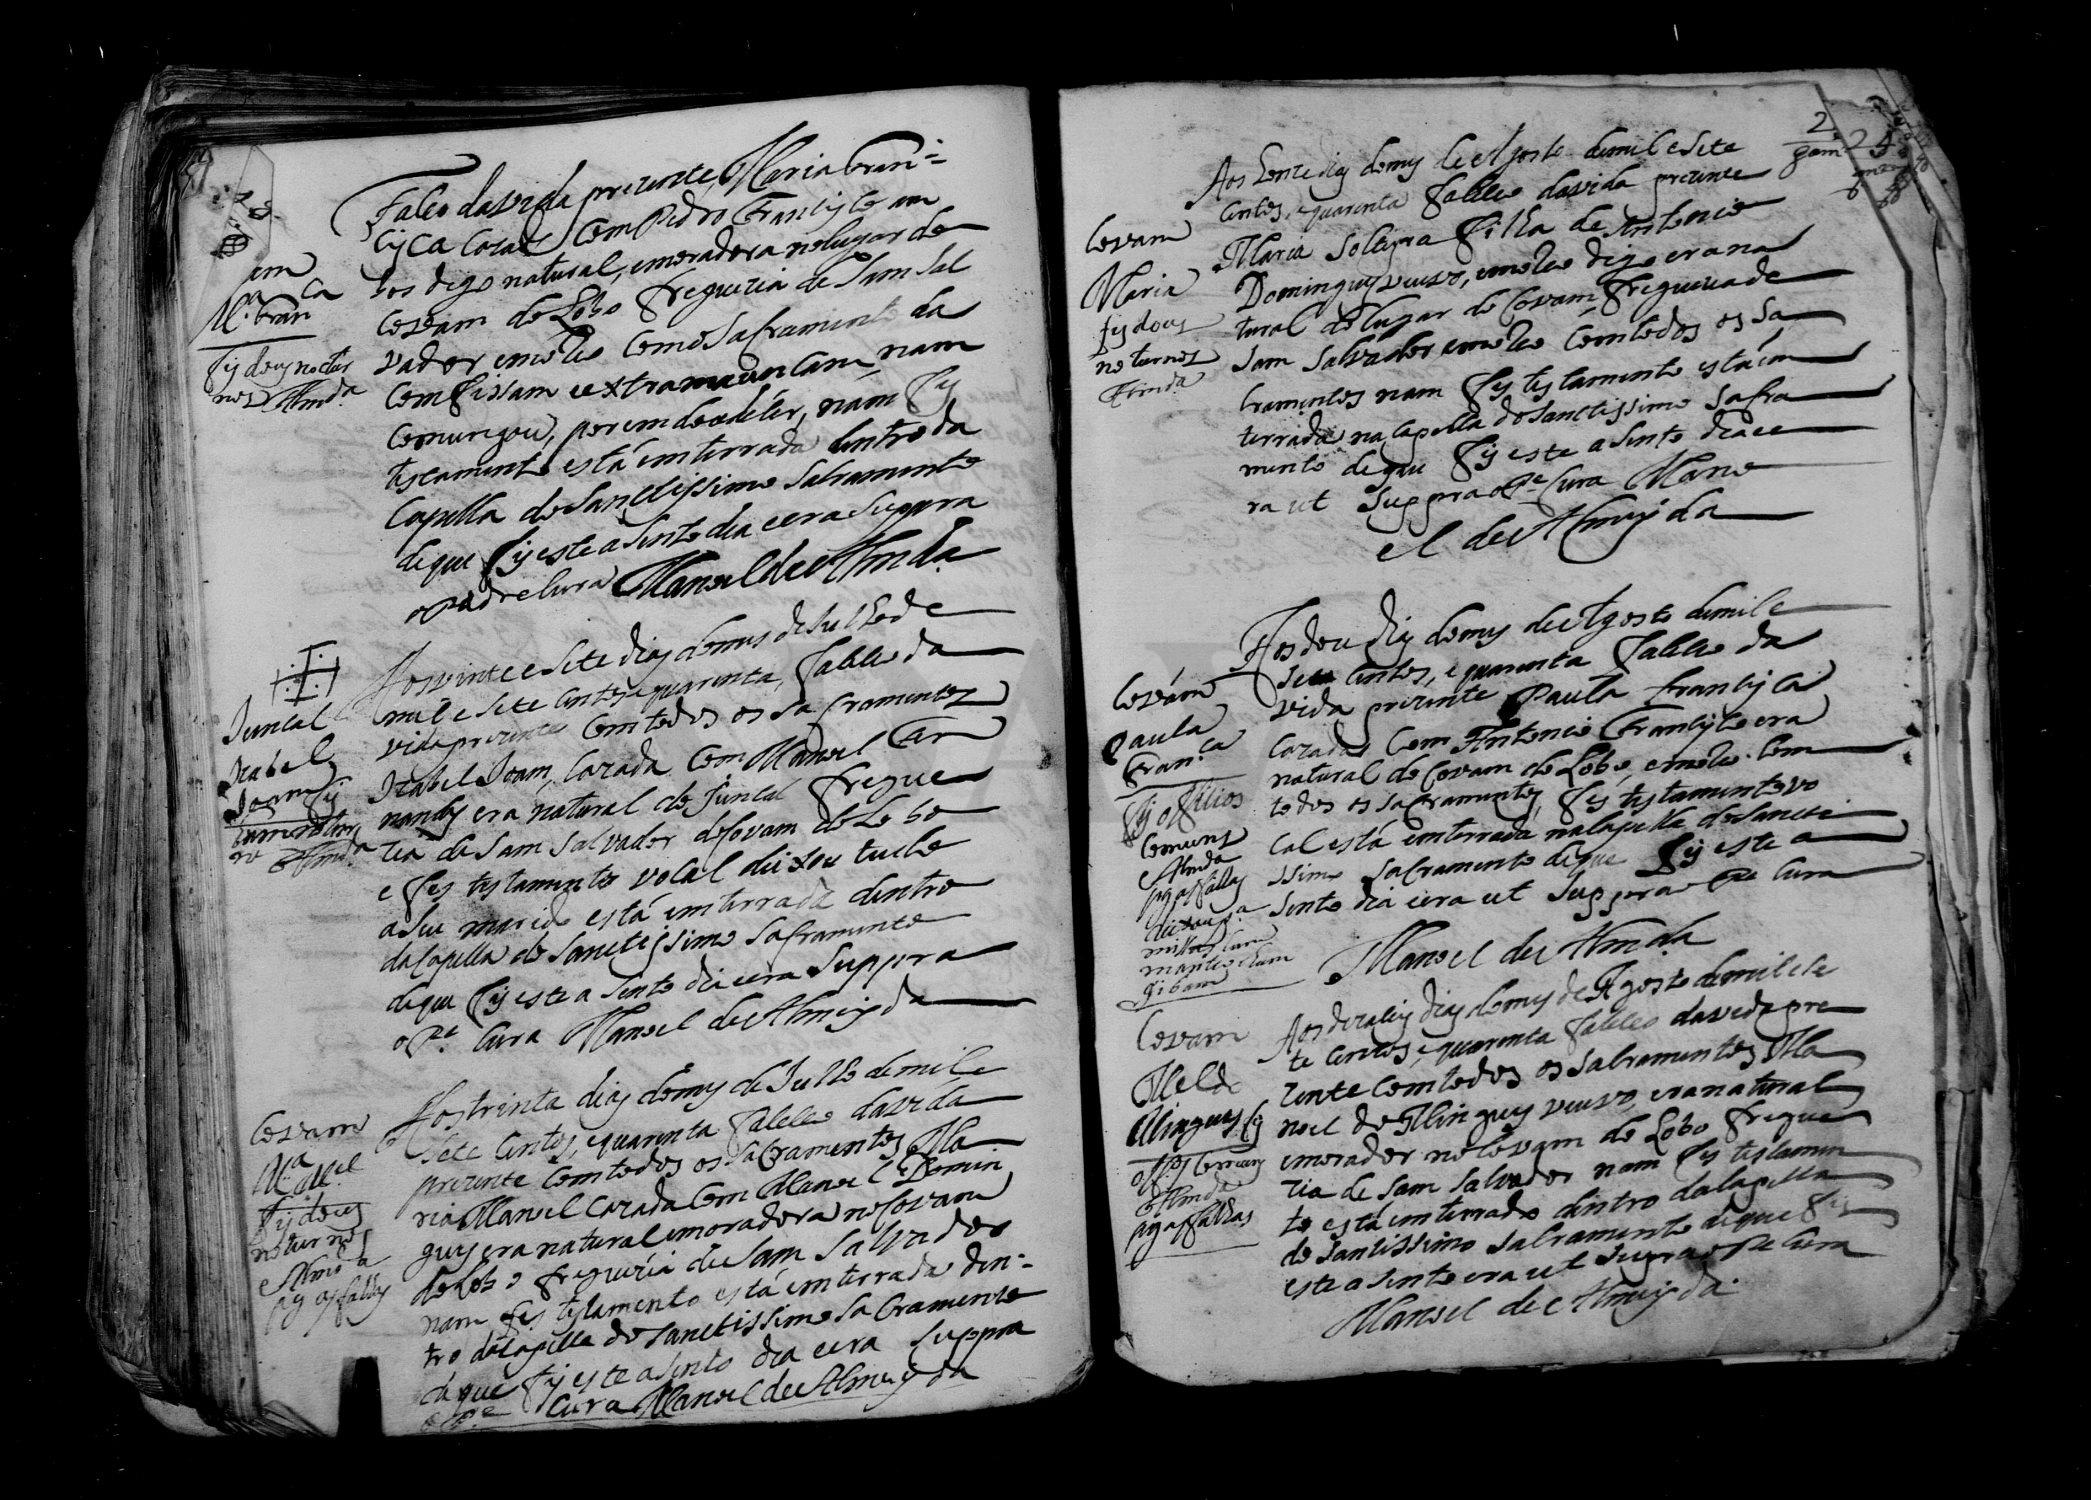 Faleo da vida prezente, Maria Fran=
cisca cazada com Pedro Francisco am
bos digo natural, emoradora nolugar de
Covam do Lobo freguezia de Sam Sal
vador emoreo com o Sacramento da
Comfissam e extramauncam, nam
Comungou, por em doudecer, nam fes
testamento está emterrada dentro da
Capella do Sanctissimo Sacramento
deque fis este a Sento dia e era Suppra
o Padre Cura Manoel de Almda
Covam
Ma Franca
fis dous noctur
nos Almda
Aos vinte e Sete dias do mes de Julho de
mil e Sete Centos, e quarenta, falleo da
vida prezente Com todos os Sacramentos
Izabel Joam, Cazada Com Manoel Fer
nandes era natural do Juncal fregue
zia de Sam Salvador do Covam do Lobo
e fes testamento vocal deixou tudo
a Seu marido está emterrada dentro
da Capella do Sanctissimo Sacramento
deque fis este a Sento dia e era Suppra
o Pe Cura Manoel de Almeyda
Juncal
Izabel
Joam fis
Almda
Aos trinta dias do mes de Julho de mil e
Sete Centos, e quarenta faleo da vida
prezente Com todos os Sacramentos Ma
ria Manoel Cazada Com Manoel Domin
gues era natural emoradora no Covam
do Lobo freguezia de Sam Salvador
nam fes testamento está emterrada den=
tro da Capella do Sanctissimo Sacramento
de que fis este a Sento dia e era Suppra
o Pe Cura Manoel de Almeyda
Covam
Ma Mel
fis dous
noturnos
e Almda
pg as faltas
Aos Honze dias do mes de Agosto de mil e Sete
Centos, e quarenta falleo da vida prezente
Maria Solteyra filha de Antonio
Domingues viuvo, emoreo digo era na
tural do lugar do Covam, freguezia de
Sam Salvador emoreo Com todos os Sa
cramentos nam fes testamento está em
terrada na Capella do Sanctissimo Sacra
mento de que fis este a Sento dia e e
ra ut Suppra o Pe Cura Mano
el de Almeyda
Covam
Maria
fis dous
noturnos
Almda
Aos dou dias do mes de Agosto de mil e
Sete Centos, e quarenta falleo da
vida prezente Paula Francisca
Cazada Com Antonio Francisco era
natural do Covam do Lobo, emoreo Com
todos os Sacramentos, fes testamento vo
cal está emterrada na Capella do Sancti
ssimo Sacramento deque fis este a
Sento dia e era ut Suppra o Pe Cura
Manoel de Almda
Covam
Paula
Franca
fis officios
Comuns
e Almda
pg as faltas
deixou pa
missas
Aos dezaseis dias do mes de Agosto de mil e Se
te Centos, e quarenta falleo da vida pre
zente Com todos os Sacramentos Ma
noel de Mingues viuvo, era natural
emorador no Covam do Lobo fregue
zia de Sam Salvador nam fes testamen
to está emterrado dentro da Capella
do Santissimo Sacramento de que fis
este a Sento era ut Supra o Pe Cura
Manoel de Almeyda
Covam
Mel de
Mingues fis
e Almda
pg as faltas